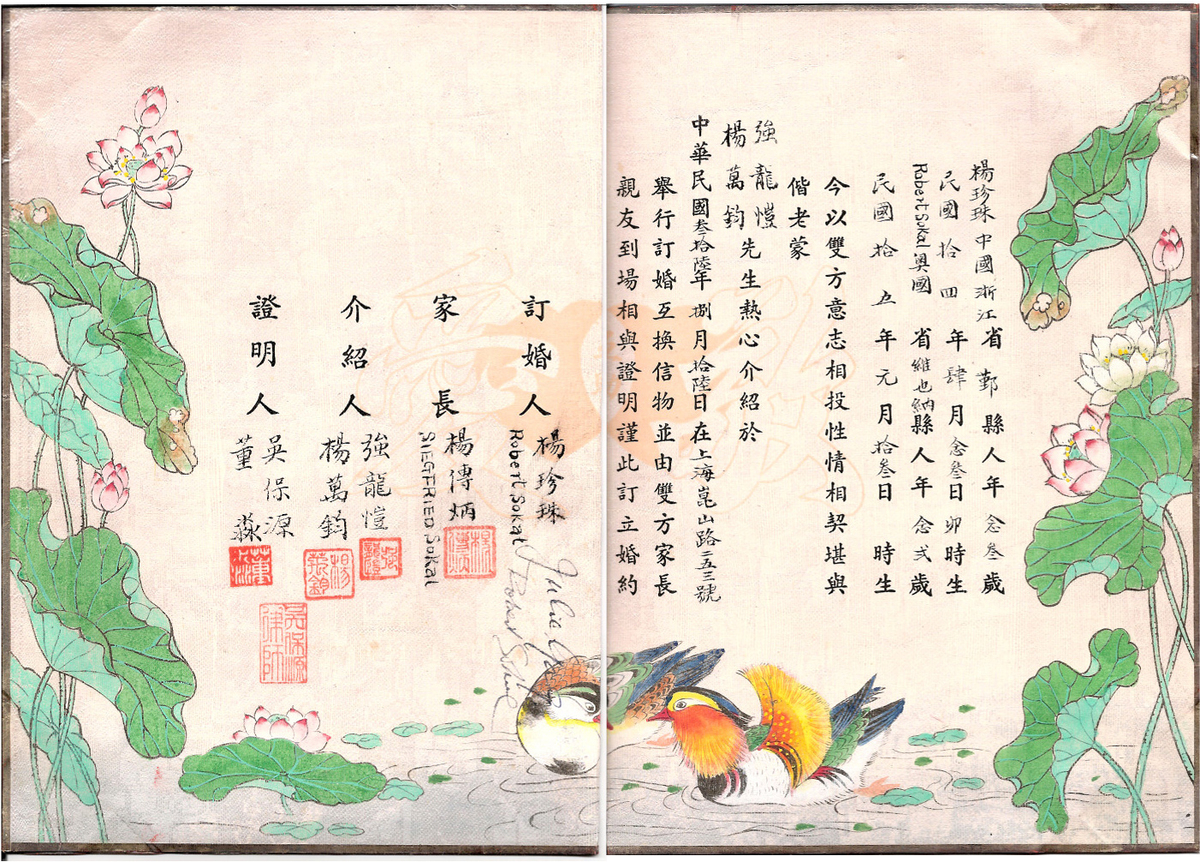 楊珍珠中國浙江省鄞縣人年念叁歲
民國拾四年肆月念叁日卯時生
Robert Sokal 奧國省維也納縣人年念弍歲
民國拾五年元月拾叁日時生
今以雙方意志相投性情相契堪與
偕老蒙
強龍愷
楊萬鈞先生熱心介紹於
中華民國叁拾陸年捌月拾陸日在上海崑山路二五三號
舉行訂婚互換信物並由雙方家長
親友到場相與證明謹此訂立婚約
訂婚人 楊珍珠
Robert Sokal
Julie
Robert Sokal
家長 楊傳炳
SIEGFRIED Sokal
介紹人 強龍愷
楊萬鈞
證明人 吳保源
董淼
吳保源律師